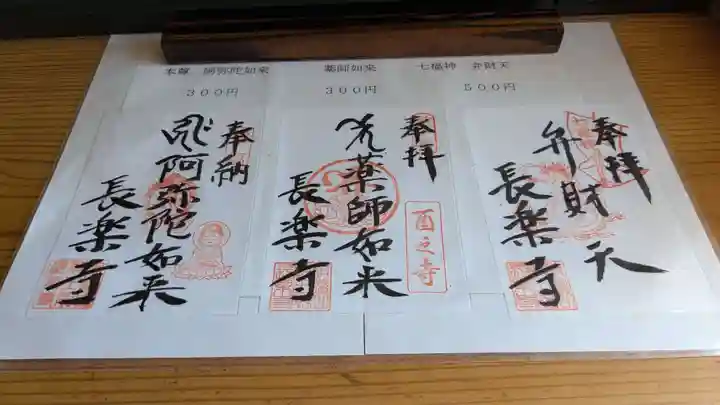 本尊 阿弥陀如来
300円
薬師如来
300円
七福神 弁財天
500円
奉納
阿弥陀如来
長楽寺
奉拝
薬師如来
長楽寺
酉之寺
奉拝
弁財天
長楽寺